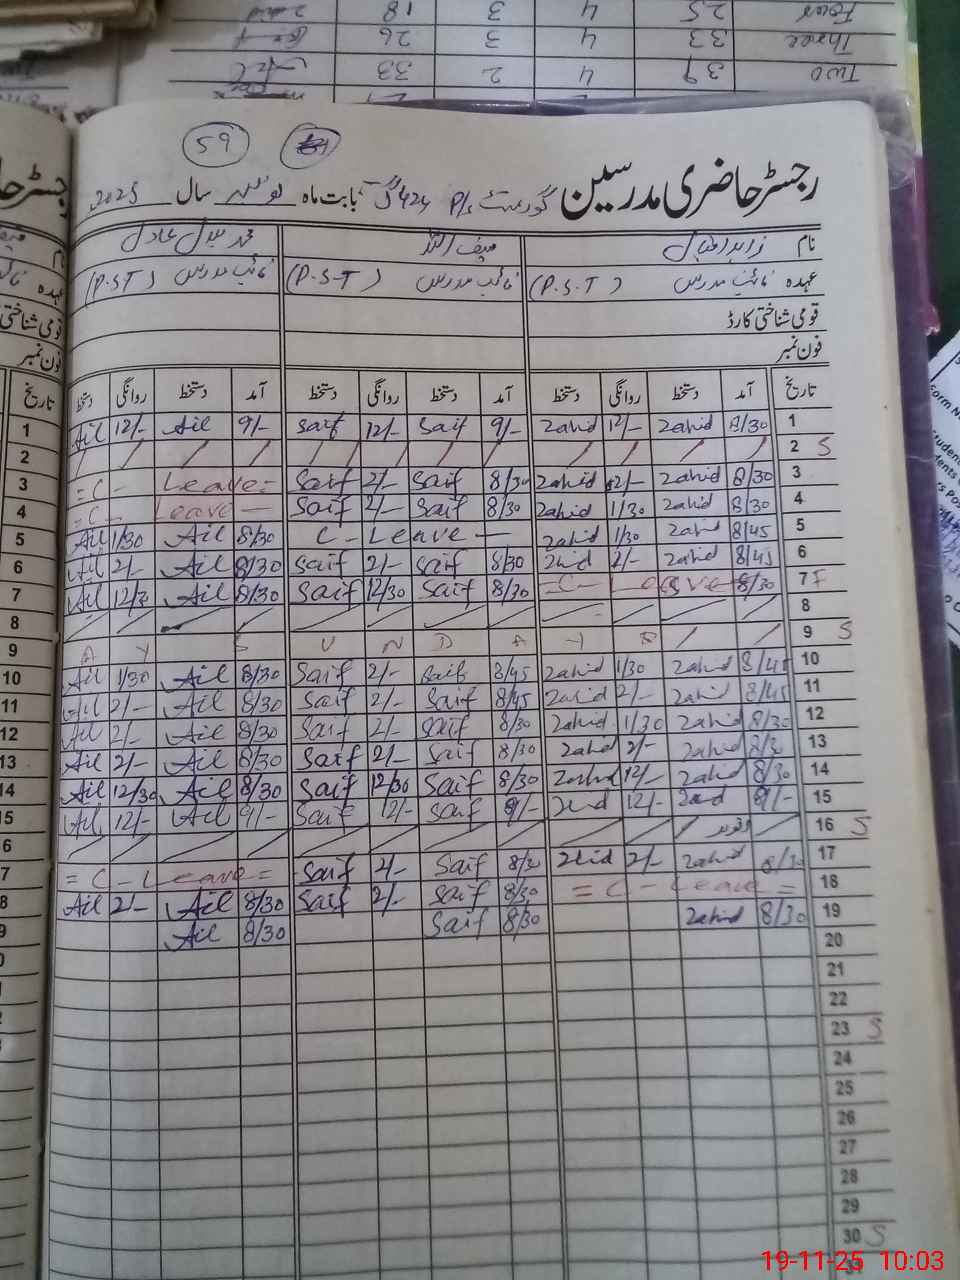 59
رجسٹر حاضری مدرسین گورنمنٹ P/S 424 گ ب بابت ماہ نومبر سال 2025
نام زاہد اقبال سیف اللہ محمد بلال عادل
عہدہ نائب مدرس (P.S.T) نائب مدرس (P.S.T) نائب مدرس (P.S.T)
قومی شناختی کارڈ
فون نمبر
تاریخ آمد دستخط روانگی دستخط آمد دستخط روانگی دستخط آمد دستخط روانگی دستخط
1 8/30 Zahid 12/- Zahid 9/- Saif 12/- Saif 9/- Ail 12/- Ail
2 S
3 8/30 Zahid 2/- Zahid 8/30 Saif 2/- Saif = C - Leave =
4 8/30 Zahid 1/30 Zahid 8/30 Saif 2/- Saif = C - Leave -
5 8/45 Zahid 1/30 Zahid C - Leave - 8/30 Ail 1/30 Ail
6 8/45 Zahid 2/- Zahid 8/30 Saif 2/- Saif 8/30 Ail 2/- Ail
7 F 8/30 = C - Leave 8/30 Saif 12/30 Saif 8/30 Ail 12/30 Ail
8
9 S S U N D A Y
10 8/45 Zahid 1/30 Zahid 8/45 Saif 2/- Saif 8/30 Ail 1/30 Ail
11 8/45 Zahid 2/- Zahid 8/45 Saif 2/- Saif 8/30 Ail 2/- Ail
12 8/30 Zahid 1/30 Zahid 8/30 Saif 2/- Saif 8/30 Ail 2/- Ail
13 8/30 Zahid 2/- Zahid 8/30 Saif 2/- Saif 8/30 Ail 2/- Ail
14 8/30 Zahid 12/- Zahid 8/30 Saif 12/30 Saif 8/30 Ail 12/30 Ail
15 9/- Zahid 12/- Zahid 9/- Saif 12/- Saif 9/- Ail 12/- Ail
16 S
17 8/30 Zahid 2/- Zahid 8/30 Saif 2/- Saif = C - Leave =
18 = C - Leave = 8/30 Saif 2/- Saif 8/30 Ail 2/- Ail
19 8/30 Zahid 8/30 Saif 8/30 Ail
20
21
22
23 S
24
25
26
27
28
29
30 S
19-11-25 10:03